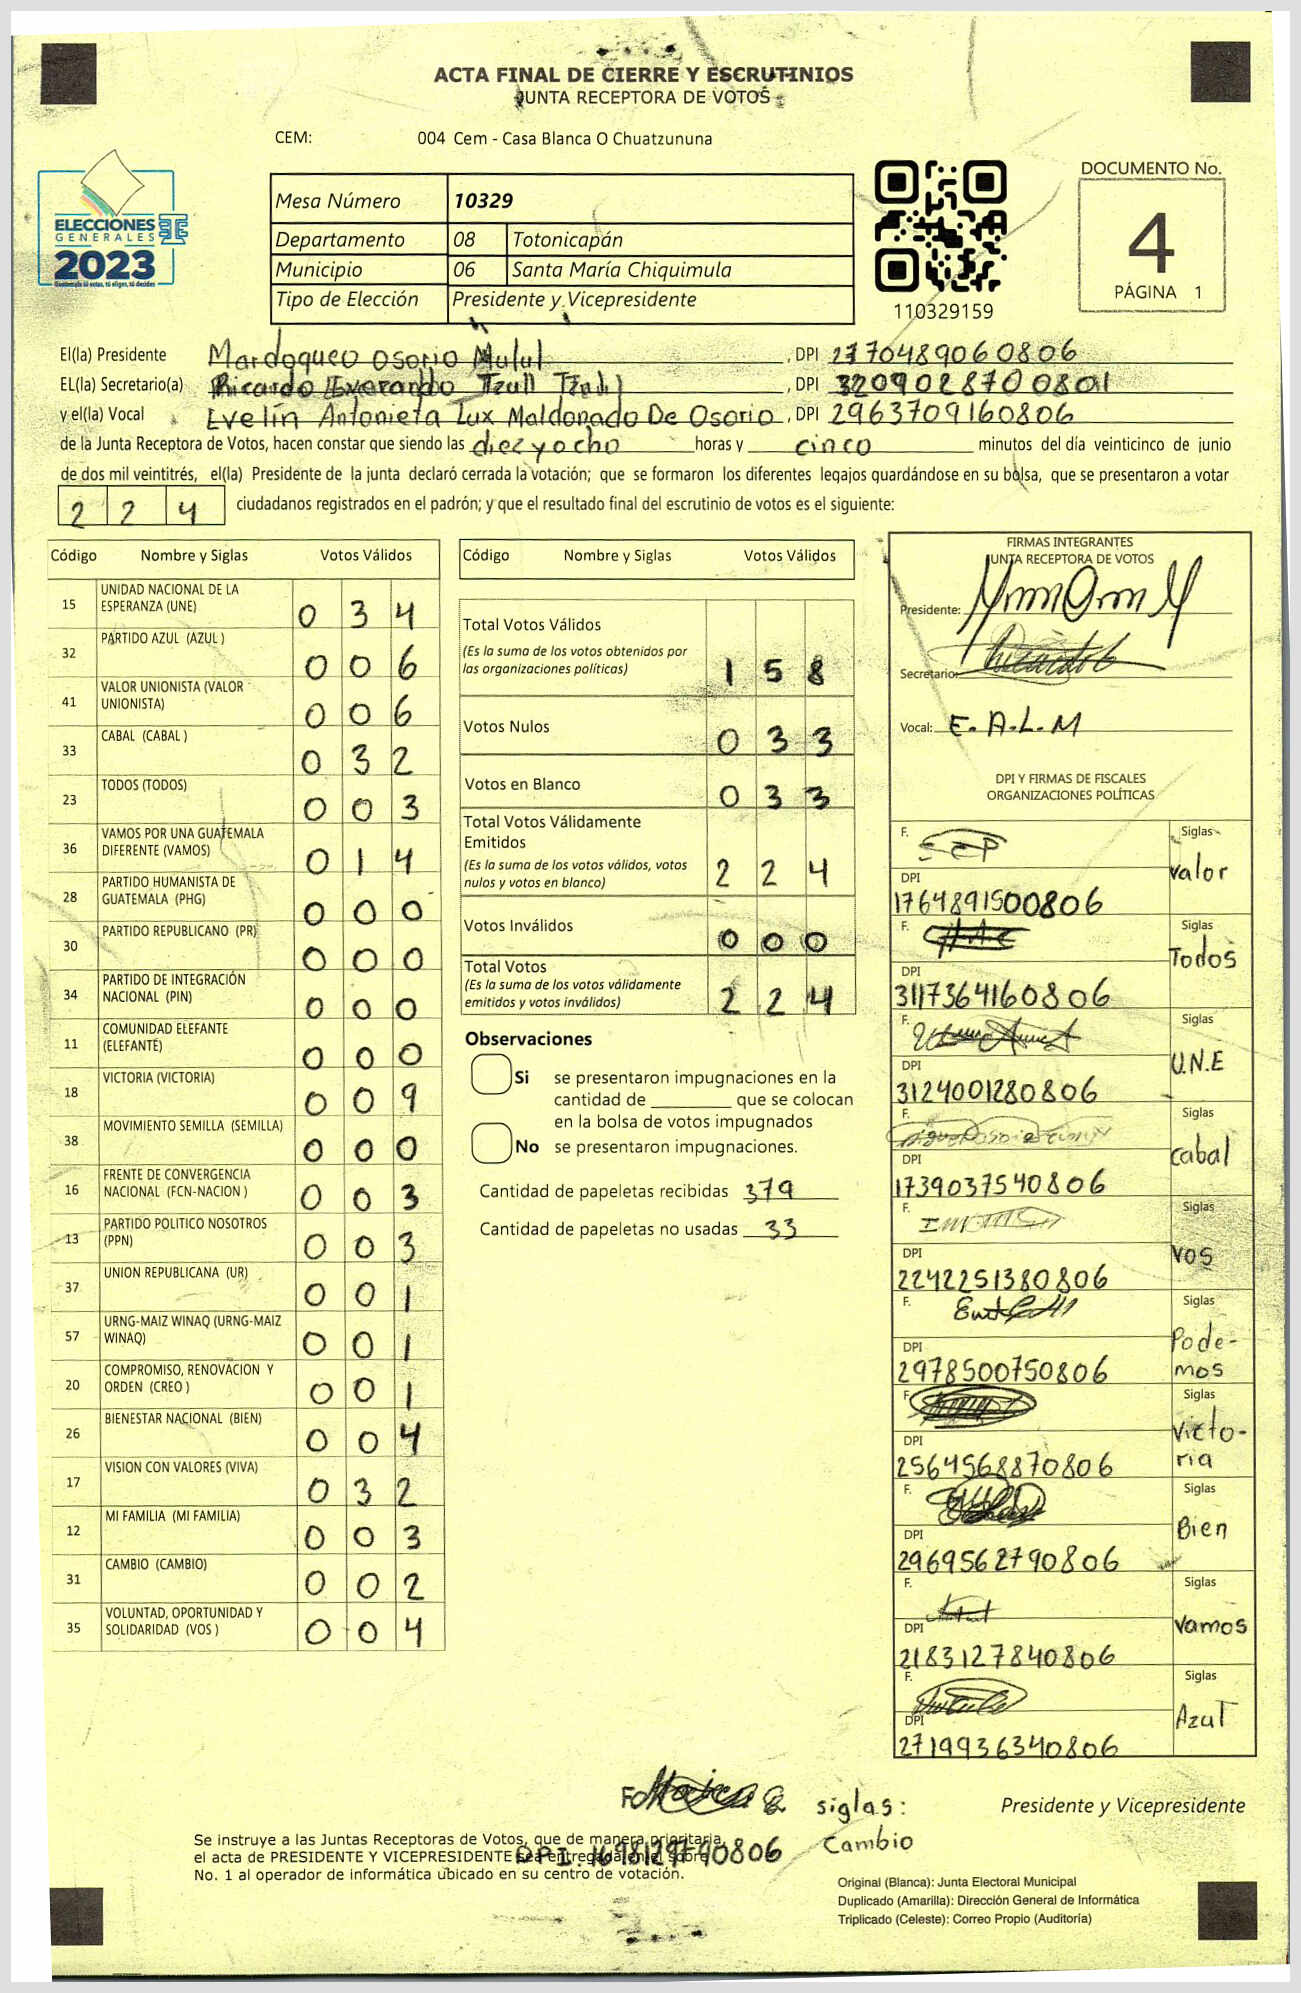 ACTA FINAL DE CIERRE Y ESCRUTINIOS
JUNTA RECEPTORA DE VOTOS
CEM: 004 Cem - Casa Blanca O Chuatzununa
ELECCIONES
GENERALES
2023
Guatemala tú votas, tú eliges, tú decides
Mesa Número 10329
Departamento 08 Totonicapán
Municipio 06 Santa María Chiquimula
Tipo de Elección Presidente y Vicepresidente
110329159
DOCUMENTO No.
4
PÁGINA 1
El(la) Presidente Mardoqueo Osorio Mulul, DPI 2770489060806
EL(la) Secretario(a) Ricardo Everardo Tzul Tzul, DPI 3209028700801
y el(la) Vocal Evelín Antonieta Lux Maldonado De Osorio, DPI 2963709160806
de la Junta Receptora de Votos, hacen constar que siendo las diez y ocho horas y cinco minutos del día veinticinco de junio
de dos mil veintitrés, el(la) Presidente de la junta declaró cerrada la votación; que se formaron los diferentes legajos guardándose en su bolsa, que se presentaron a votar
224 ciudadanos registrados en el padrón; y que el resultado final del escrutinio de votos es el siguiente:
Código Nombre y Siglas Votos Válidos
15 UNIDAD NACIONAL DE LA ESPERANZA (UNE) 0 3 4
32 PARTIDO AZUL (AZUL ) 0 0 6
41 VALOR UNIONISTA (VALOR UNIONISTA) 0 0 6
33 CABAL (CABAL ) 0 3 2
23 TODOS (TODOS) 0 0 3
36 VAMOS POR UNA GUATEMALA DIFERENTE (VAMOS) 0 1 4
28 PARTIDO HUMANISTA DE GUATEMALA (PHG) 0 0 0
30 PARTIDO REPUBLICANO (PR) 0 0 0
34 PARTIDO DE INTEGRACIÓN NACIONAL (PIN) 0 0 0
11 COMUNIDAD ELEFANTE (ELEFANTE) 0 0 0
18 VICTORIA (VICTORIA) 0 0 9
38 MOVIMIENTO SEMILLA (SEMILLA) 0 0 0
16 FRENTE DE CONVERGENCIA NACIONAL (FCN-NACION ) 0 0 3
13 PARTIDO POLITICO NOSOTROS (PPN) 0 0 3
37 UNION REPUBLICANA (UR) 0 0 1
57 URNG-MAIZ WINAQ (URNG-MAIZ WINAQ) 0 0 1
20 COMPROMISO, RENOVACION Y ORDEN (CREO ) 0 0 1
26 BIENESTAR NACIONAL (BIEN) 0 0 4
17 VISION CON VALORES (VIVA) 0 3 2
12 MI FAMILIA (MI FAMILIA) 0 0 3
31 CAMBIO (CAMBIO) 0 0 2
35 VOLUNTAD, OPORTUNIDAD Y SOLIDARIDAD (VOS ) 0 0 4
Código Nombre y Siglas Votos Válidos
Total Votos Válidos 1 5 8
(Es la suma de los votos obtenidos por
las organizaciones políticas)
Votos Nulos 0 3 3
Votos en Blanco 0 3 3
Total Votos Válidamente
Emitidos 2 2 4
(Es la suma de los votos válidos, votos
nulos y votos en blanco)
Votos Inválidos 0 0 0
Total Votos 2 2 4
(Es la suma de los votos válidamente
emitidos y votos inválidos)
Observaciones
Si se presentaron impugnaciones en la
cantidad de ________ que se colocan
en la bolsa de votos impugnados
No se presentaron impugnaciones.
Cantidad de papeletas recibidas 379
Cantidad de papeletas no usadas 33
FIRMAS INTEGRANTES
JUNTA RECEPTORA DE VOTOS
Presidente:
Secretario:
Vocal: E.A.L.M
DPI Y FIRMAS DE FISCALES
ORGANIZACIONES POLÍTICAS
F. Siglas Valor
DPI 1764891500806
F. Siglas Todos
DPI 3117364160806
F. Siglas U.N.E
DPI 3124001280806
F. Siglas Cabal
DPI 1739037540806
F. Siglas VOS
DPI 2242251380806
F. Siglas Pode-mos
DPI 2978500750806
F. Siglas Victo-ria
DPI 2564568870806
F. Siglas Bien
DPI 2969562790806
F. Siglas Vamos
DPI 2183127840806
F. Siglas Azul
DPI 2719936340806
siglas:
Cambio
Presidente y Vicepresidente
Se instruye a las Juntas Receptoras de Votos, que de manera prioritaria,
el acta de PRESIDENTE Y VICEPRESIDENTE sea entregada en el sobre
No. 1 al operador de informática ubicado en su centro de votación.
Original (Blanca): Junta Electoral Municipal
Duplicado (Amarilla): Dirección General de Informática
Triplicado (Celeste): Correo Propio (Auditoría)